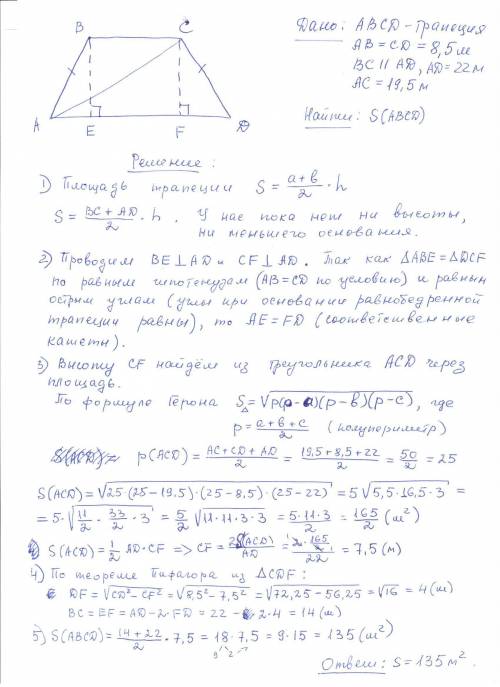 Дано: ABCD - трапеция
AB = CD = 8,5 м
BC || AD, AD = 22 м
AC = 19,5 м
Найти: S(ABCD)
B C
A E F D
Решение:
1) Площадь трапеции S = (a+b)/2 · h
S = (BC + AD)/2 · h. У нас пока нет ни высоты,
ни меньшего основания.
2) Проводим BE⊥AD и CF⊥AD. Так как ΔABE = ΔDCF
по равным гипотенузам (AB=CD по условию) и равным
острым углам (углы при основании равнобедренной
трапеции равны), то AE = FD (соответственные
катеты).
3) Высоту CF найдём из треугольника ACD через
площадь.
По формуле Герона S△ = √(p(p-a)(p-b)(p-c)), где
p = (a+b+c)/2 (полупериметр)
p(ACD) = (AC+CD+AD)/2 = (19,5+8,5+22)/2 = 50/2 = 25
S(ACD) = √(25·(25-19,5)·(25-8,5)·(25-22)) = 5√(5,5·16,5·3) =
= 5·√(11/2 · 33/2 · 3) = 5/2 √(11·11·3·3) = 5·11·3/2 = 165/2 (м²)
S(ACD) = 1/2 AD·CF => CF = 2S(ACD)/AD = 2·165/2/22 = 7,5 (м)
4) По теореме Пифагора из ΔCDF:
DF = √(CD² - CF²) = √(8,5² - 7,5²) = √(72,25 - 56,25) = √16 = 4 (м)
BC = EF = AD - 2·FD = 22 - 2·4 = 14 (м)
5) S(ABCD) = (14+22)/2 · 7,5 = 18·7,5 = 9·15 = 135 (м²)
9 2
Ответ: S = 135 м².